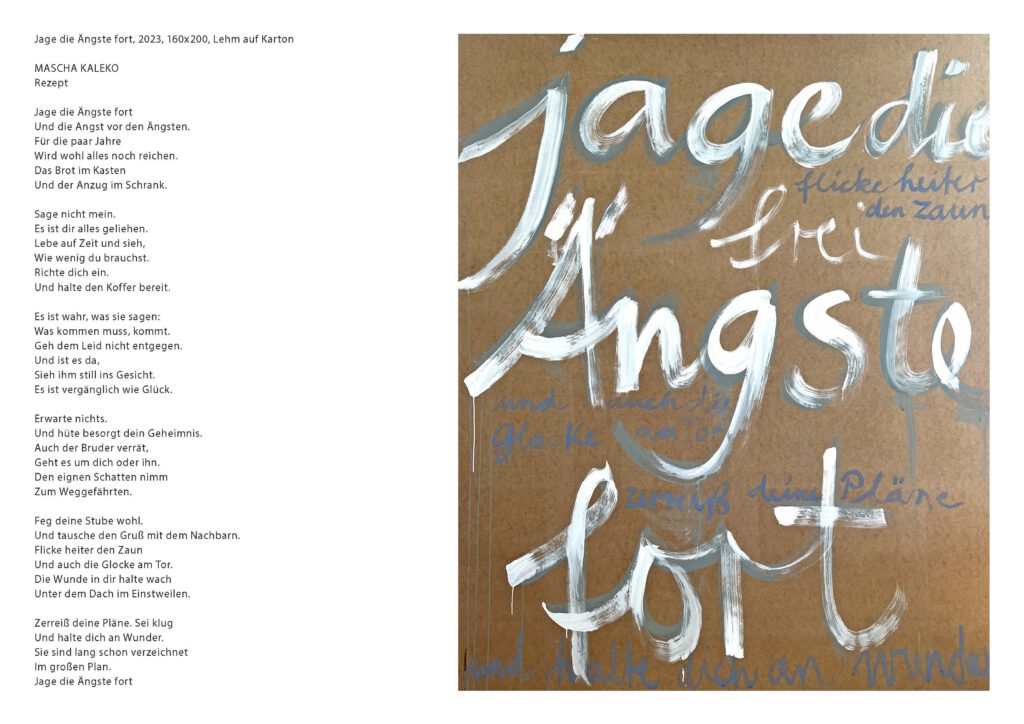 Jage die Ängste fort, 2023, 160x200, Lehm auf Karton
MASCHA KALEKO
Rezept
Jage die Ängste fort
Und die Angst vor den Ängsten.
Für die paar Jahre
Wird wohl alles noch reichen.
Das Brot im Kasten
Und der Anzug im Schrank.
Sage nicht mein.
Es ist dir alles geliehen.
Lebe auf Zeit und sieh,
Wie wenig du brauchst.
Richte dich ein.
Und halte den Koffer bereit.
Es ist wahr, was sie sagen:
Was kommen muss, kommt.
Geh dem Leid nicht entgegen.
Und ist es da,
Sieh ihm still ins Gesicht.
Es ist vergänglich wie Glück.
Erwarte nichts.
Und hüte besorgt dein Geheimnis.
Auch der Bruder verrät,
Geht es um dich oder ihn.
Den eignen Schatten nimm
Zum Weggefährten.
Feg deine Stube wohl.
Und tausche den Gruß mit dem Nachbarn.
Flicke heiter den Zaun
Und auch die Glocke am Tor.
Die Wunde in dir halte wach
Unter dem Dach im Einstweilen.
Zerreiß deine Pläne. Sei klug
Und halte dich an Wunder.
Sie sind lang schon verzeichnet
Im großen Plan.
Jage die Ängste fort
jage die
flicke heiter
den Zaun
frei
Ängste
und auch die
Glocke am Tor
zerreiß deine Pläne
fort
und halte dich an Wunder